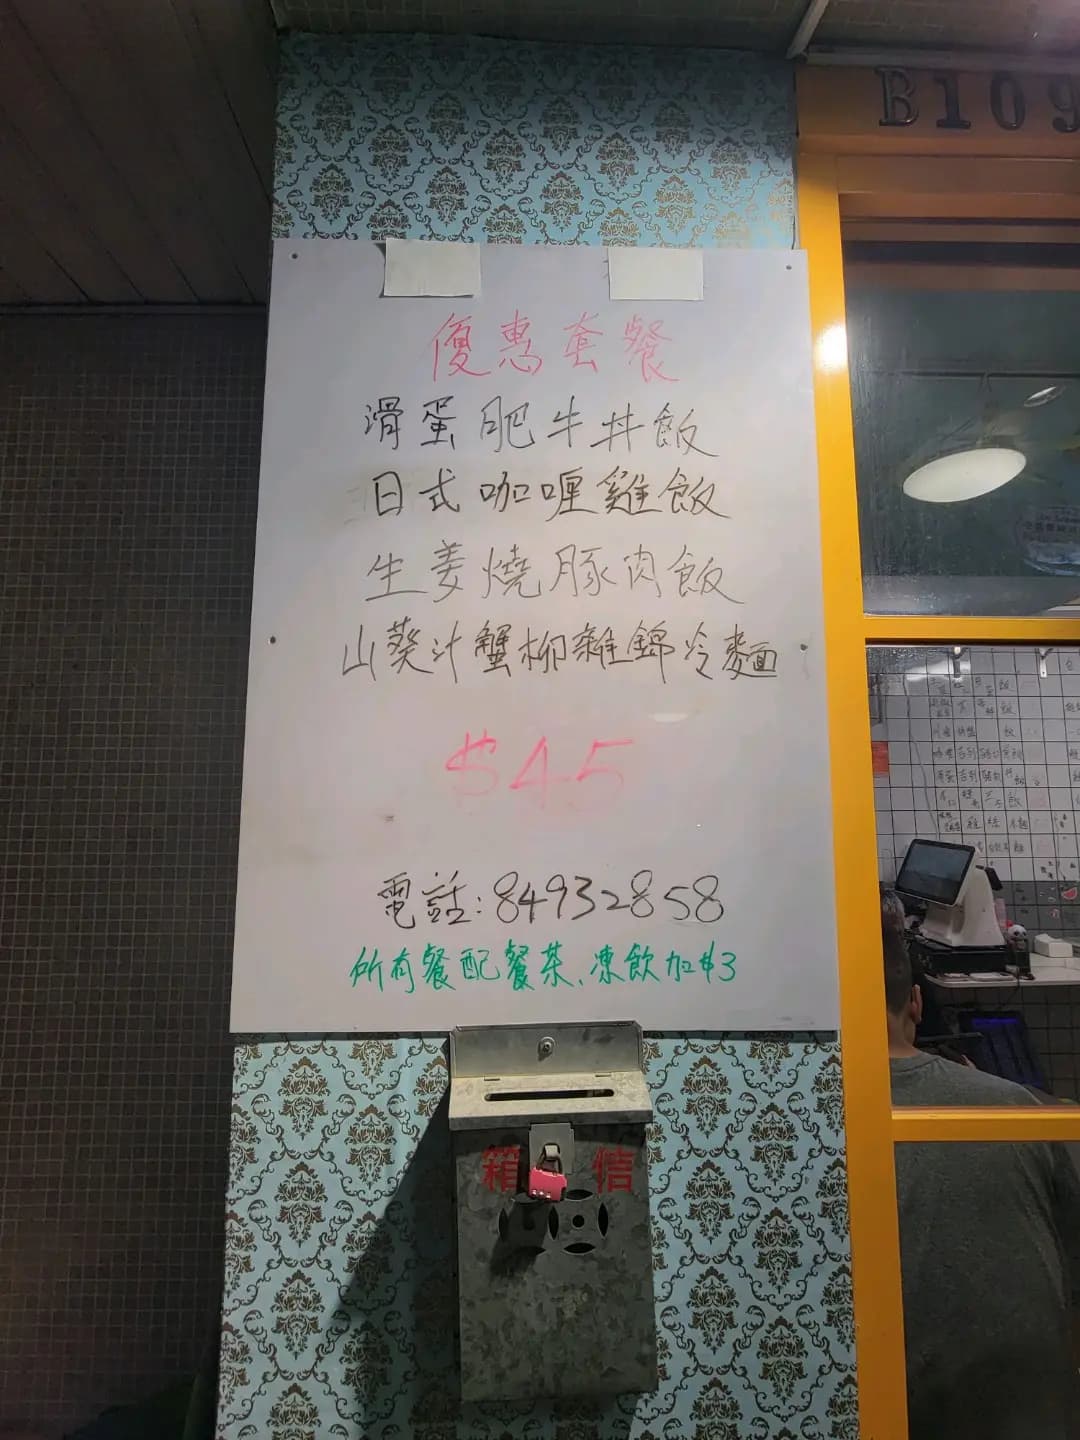 B109
優惠套餐
滑蛋肥牛丼飯
日式咖喱雞飯
生姜燒豚肉飯
山葵汁蟹柳雜錦冷麵
$45
電話:84932858
所有餐配餐茶、凍飲加$3
箱 信